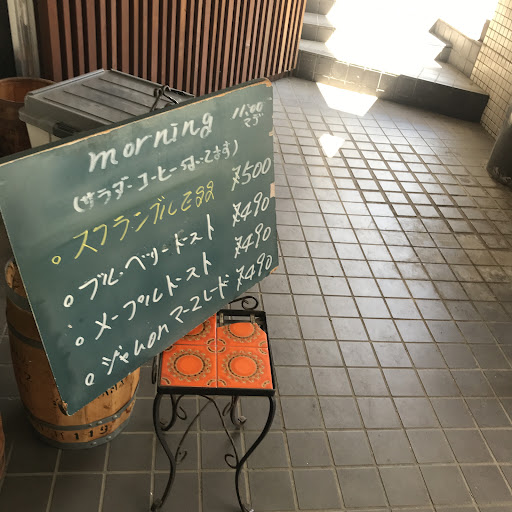 morning 11:00マデ
(サラダ・コーヒー付いてます)
。スクランブルエッグ ¥500
。ブルーベリートースト ¥490
。メープルトースト ¥490
。ジャムonマーマレード ¥490
119